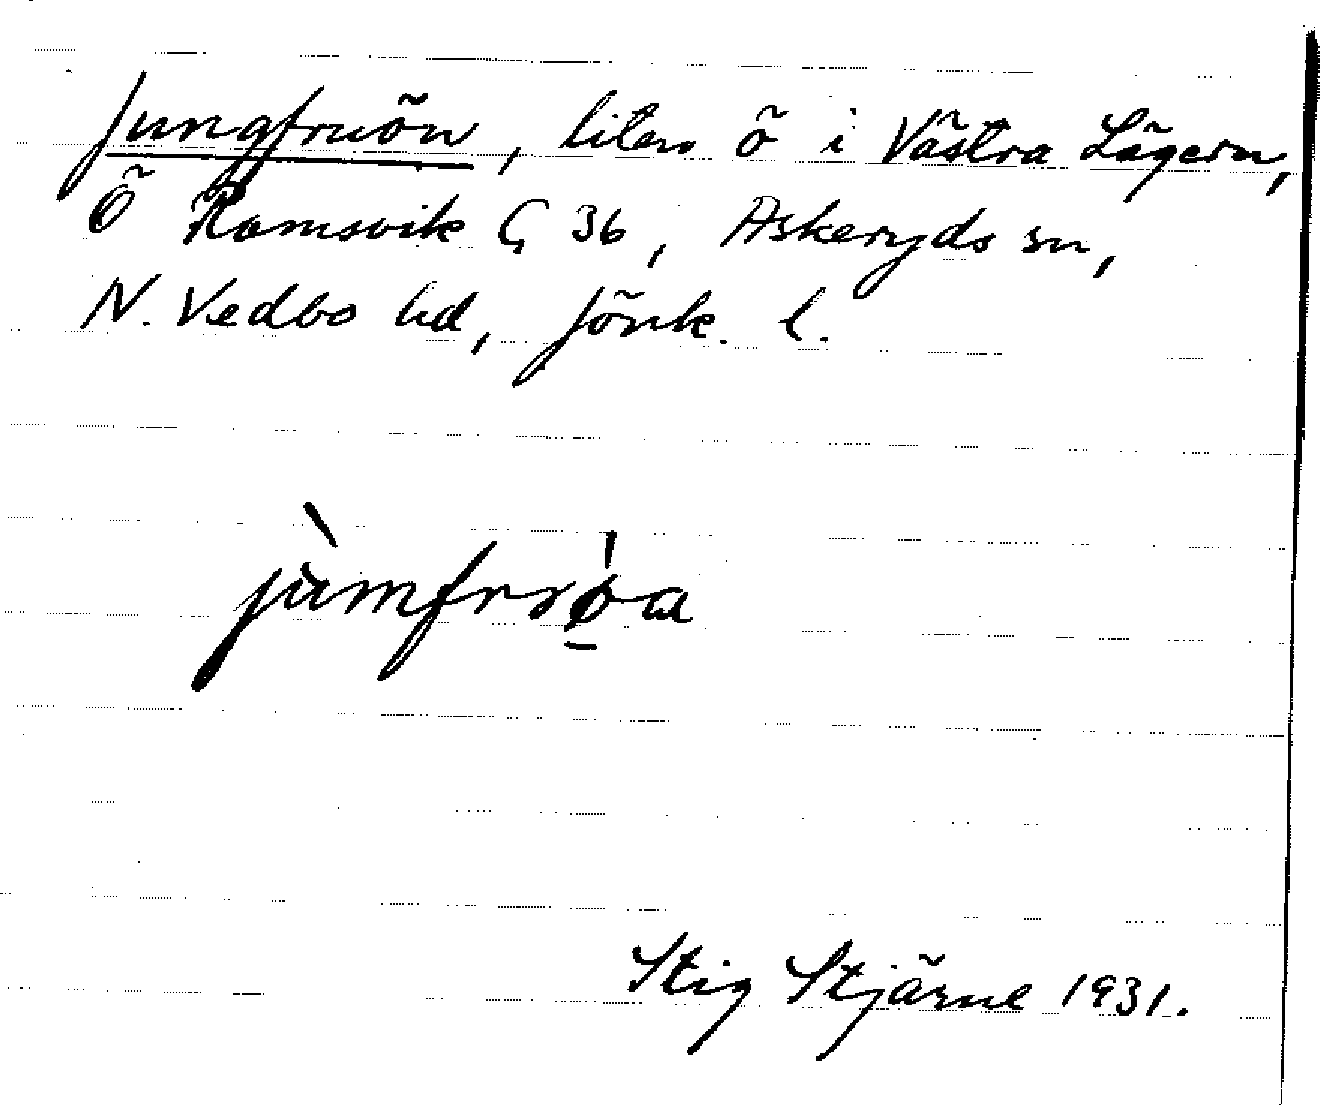 Jungfruön, liten ö i Västra Lägern,
Ö Ramsvik G 36, Askeryds sn,
N. Vedbo hd, Jönk. l.
jùmfrɤø̀a
Stig Stjärne 1931.